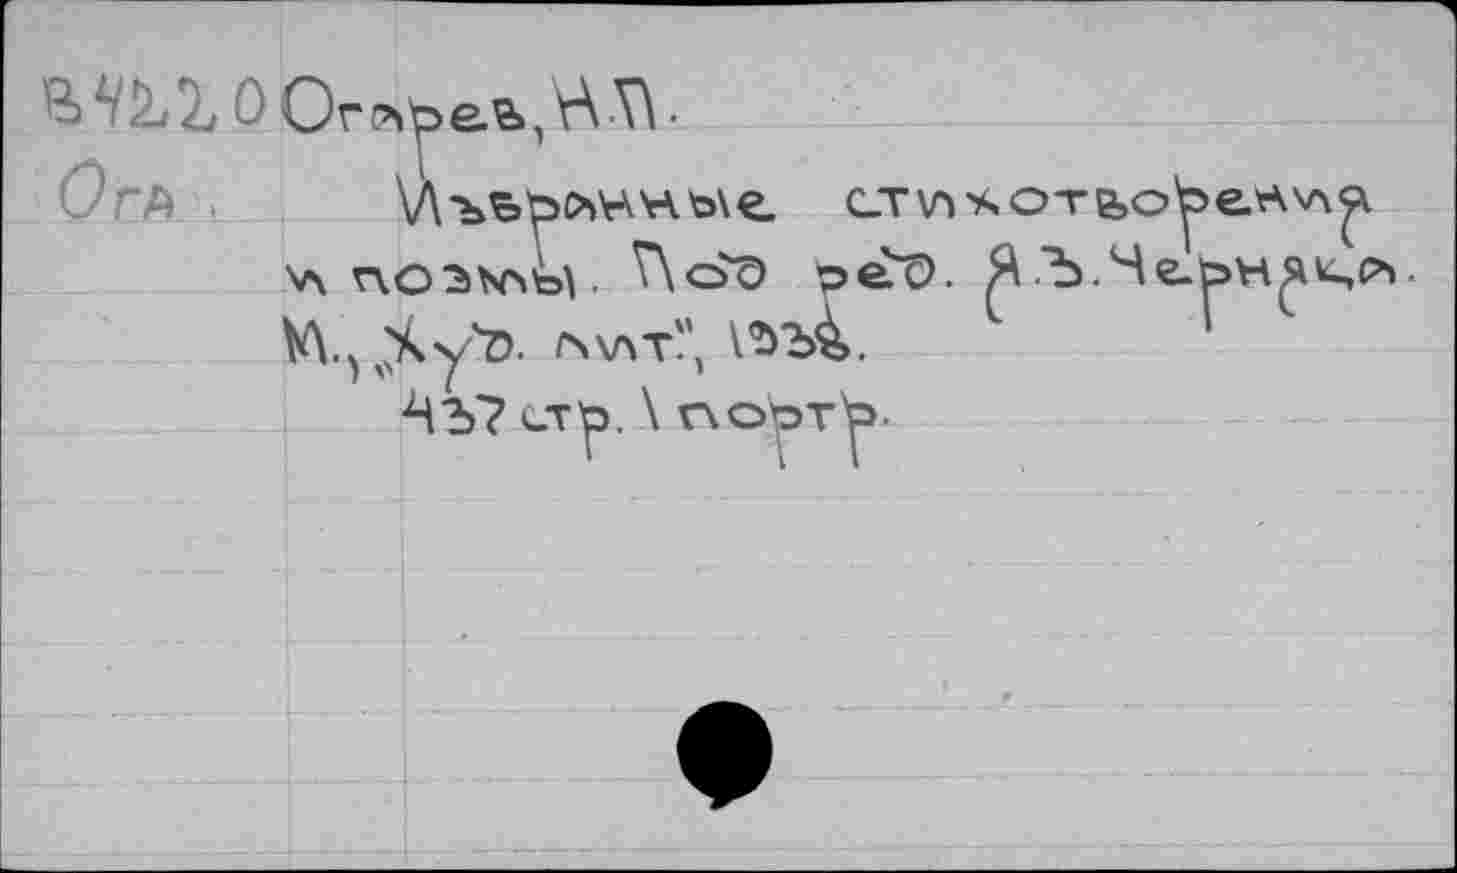 Огарев, Н.П.
Ога.
Избранные стихотворения
и поэмы. Под ред. Я.З. Черняка.
М., „Худ. лит.", 1938.
437 стр. 1 портр.